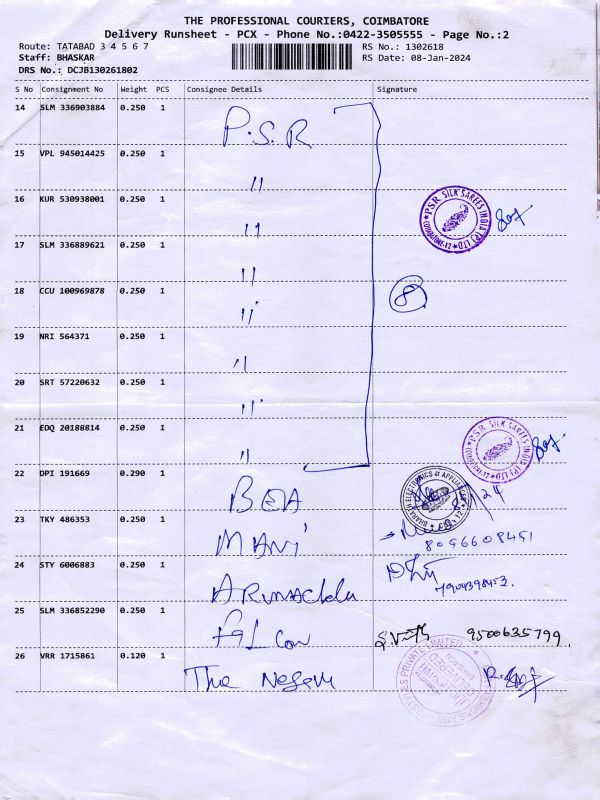 THE PROFESSIONAL COURIERS, COIMBATORE
Delivery Runsheet - PCX - Phone No.:0422-3505555 - Page No.:2
Route: TATABAD 3 4 5 6 7
RS No.: 1302618
Staff: BHASKAR
RS Date: 08-Jan-2024
DRS No.: DCJB130261802
S No Consignment No Weight PCS Consignee Details Signature
14 SLM 336903884 0.250 1 P.S.R
15 VPL 945014425 0.250 1 "
16 KUR 530938001 0.250 1 "
P.S.R. SILK SAREES INDIA (P) LTD COIMBATORE-12
17 SLM 336889621 0.250 1 "
18 CCU 100969878 0.250 1 " 8
19 NRI 564371 0.250 1 "
20 SRT 57220632 0.250 1 "
21 EDQ 20188814 0.250 1 "
P.S.R. SILK SAREES INDIA (P) LTD COIMBATORE-12
22 DPI 191669 0.290 1 BEA
23 TKY 486353 0.250 1 MANi
8056608451
24 STY 6006883 0.250 1 ARUNAChla
7904398453.
25 SLM 336852290 0.250 1 FaLcon
9500635799
26 VRR 1715861 0.120 1 The